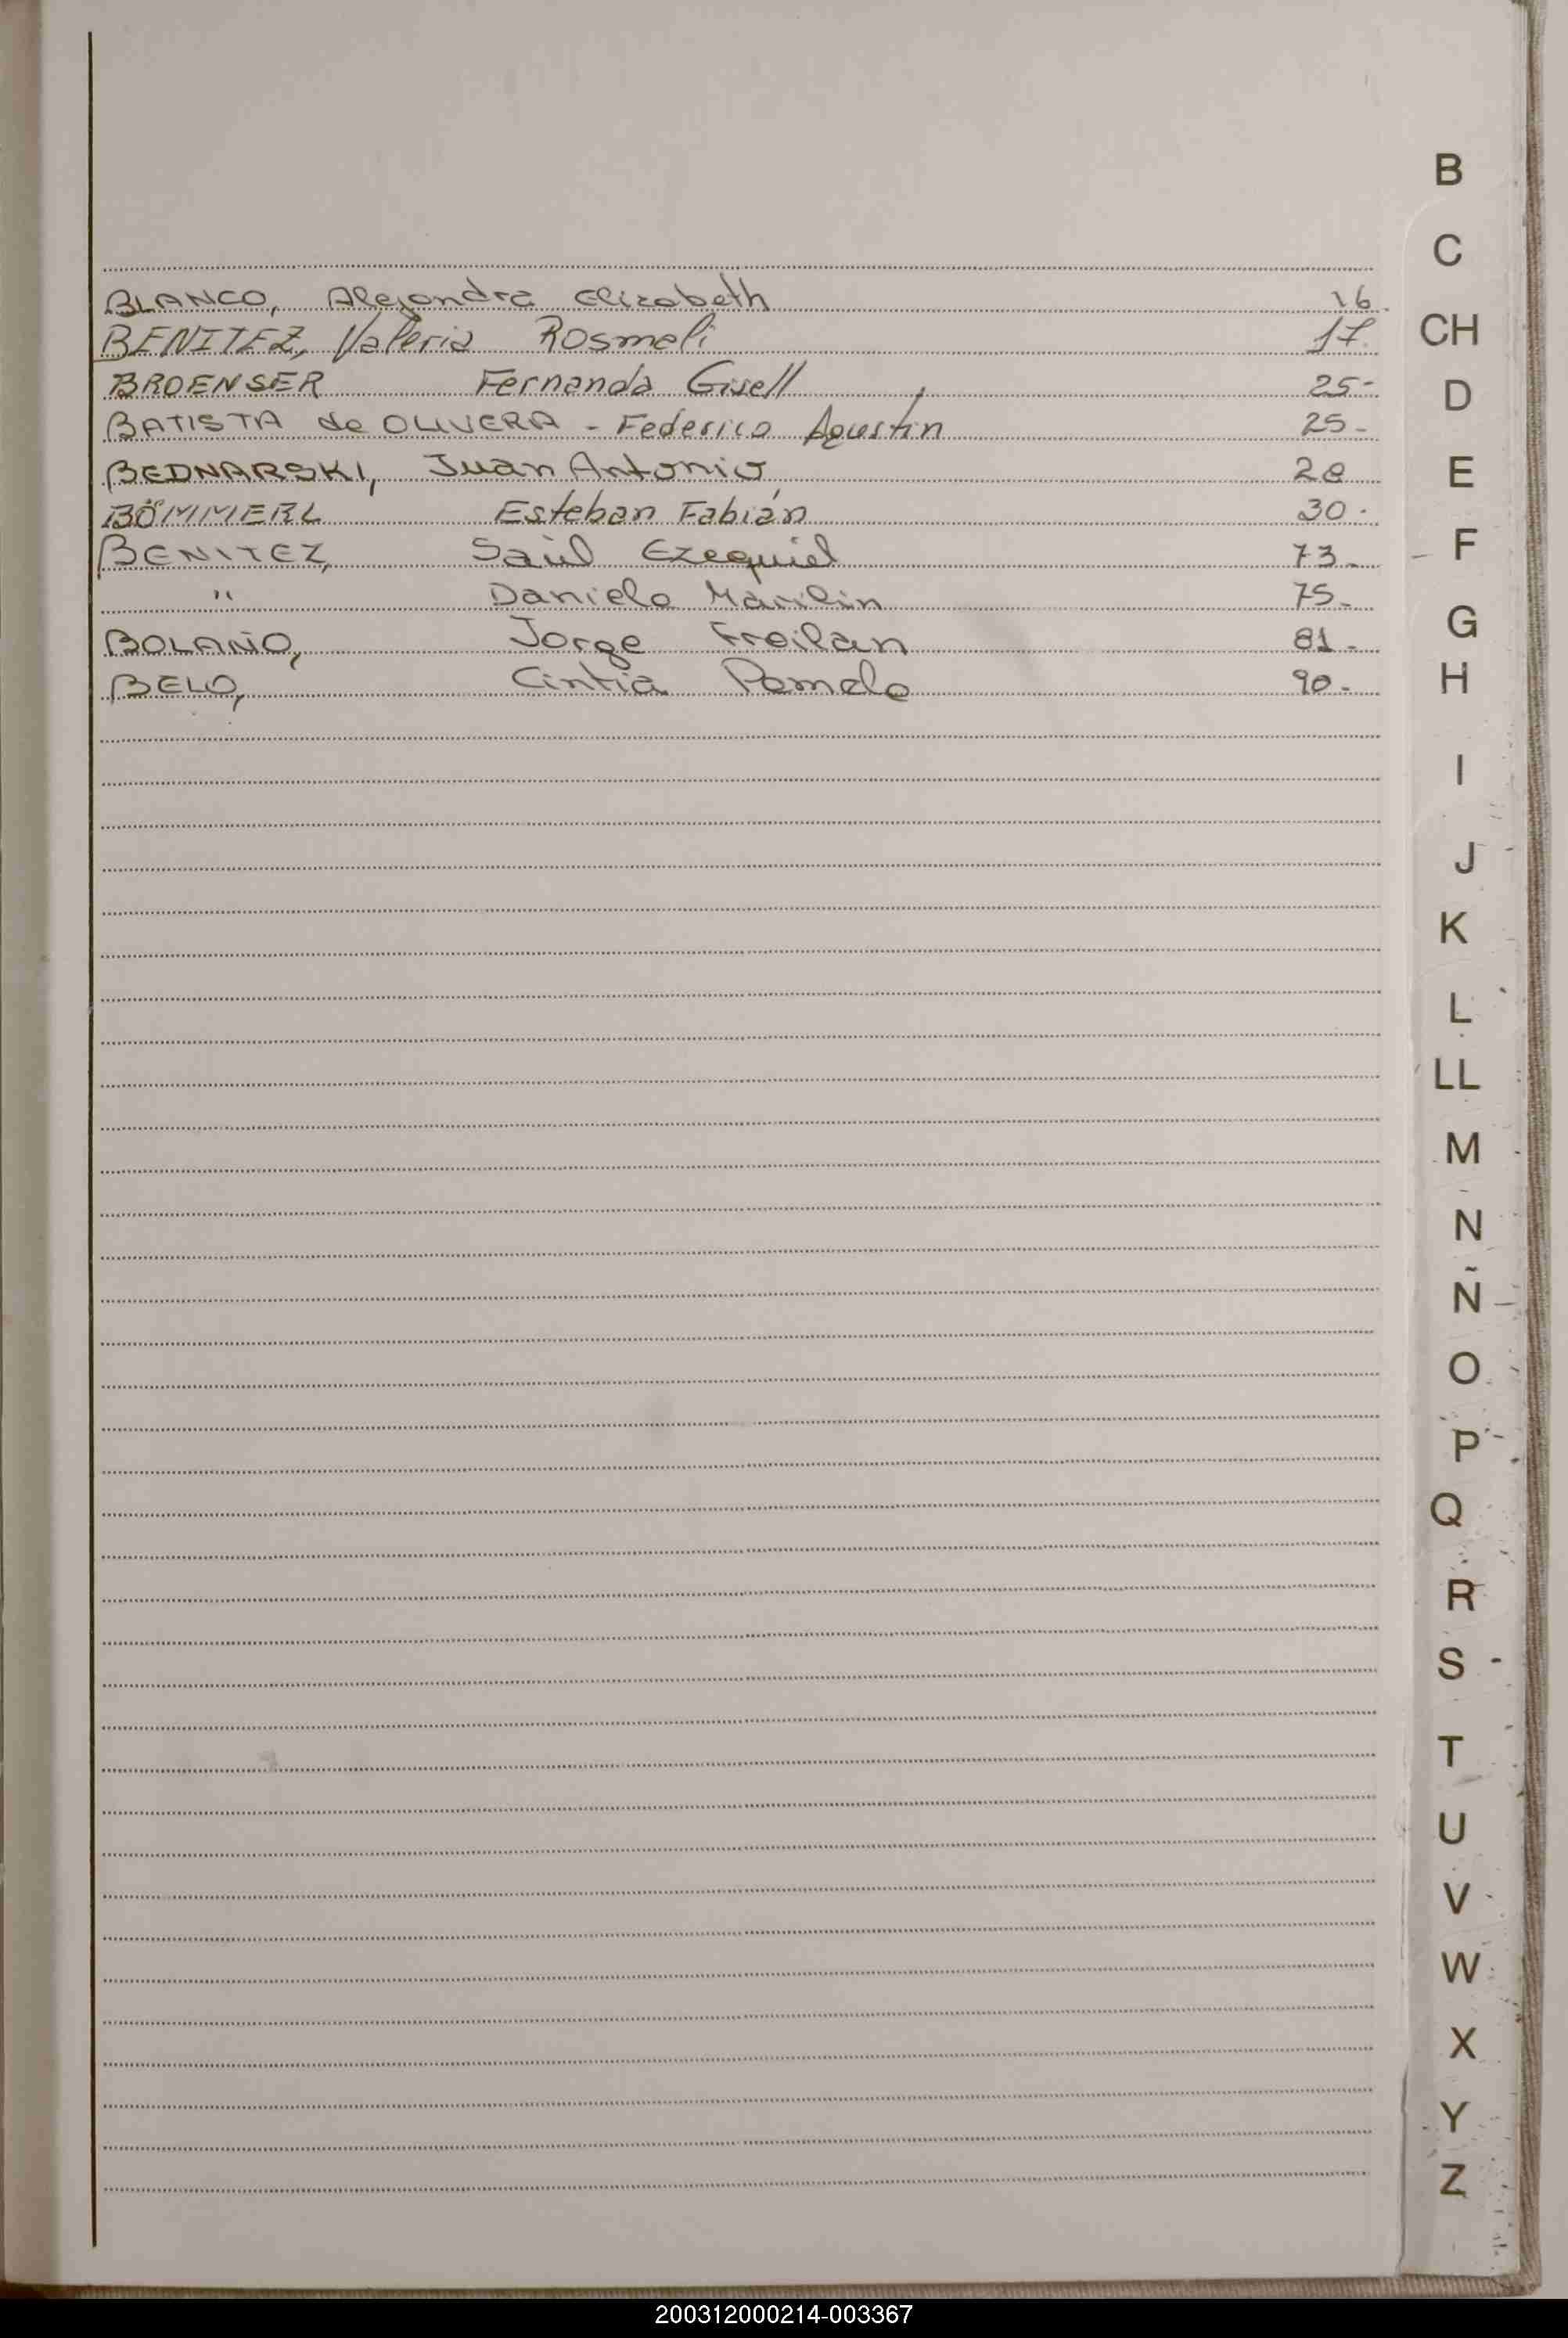 BLANCO, Alejandra Elizabeth 16.
BENITEZ, Valeria Rosmeli 17.
BROENSER Fernanda Gisell 25-
BATISTA de OLIVERA - Federico Agustín 25-
BEDNARSKI, Juan Antonio 28
BÖMMERL Esteban Fabián 30.
BENITEZ, Saúl Ezequiel 73-
" Daniela Marilin 75-
BOLAÑO, Jorge Froilan 81-
BELO, Cintia Pamela 90-
B
C
CH
D
E
F
G
H
I
J
K
L
LL
M
N
Ñ
O
P
Q
R
S
T
U
V
W
X
Y
Z
200312000214-003367